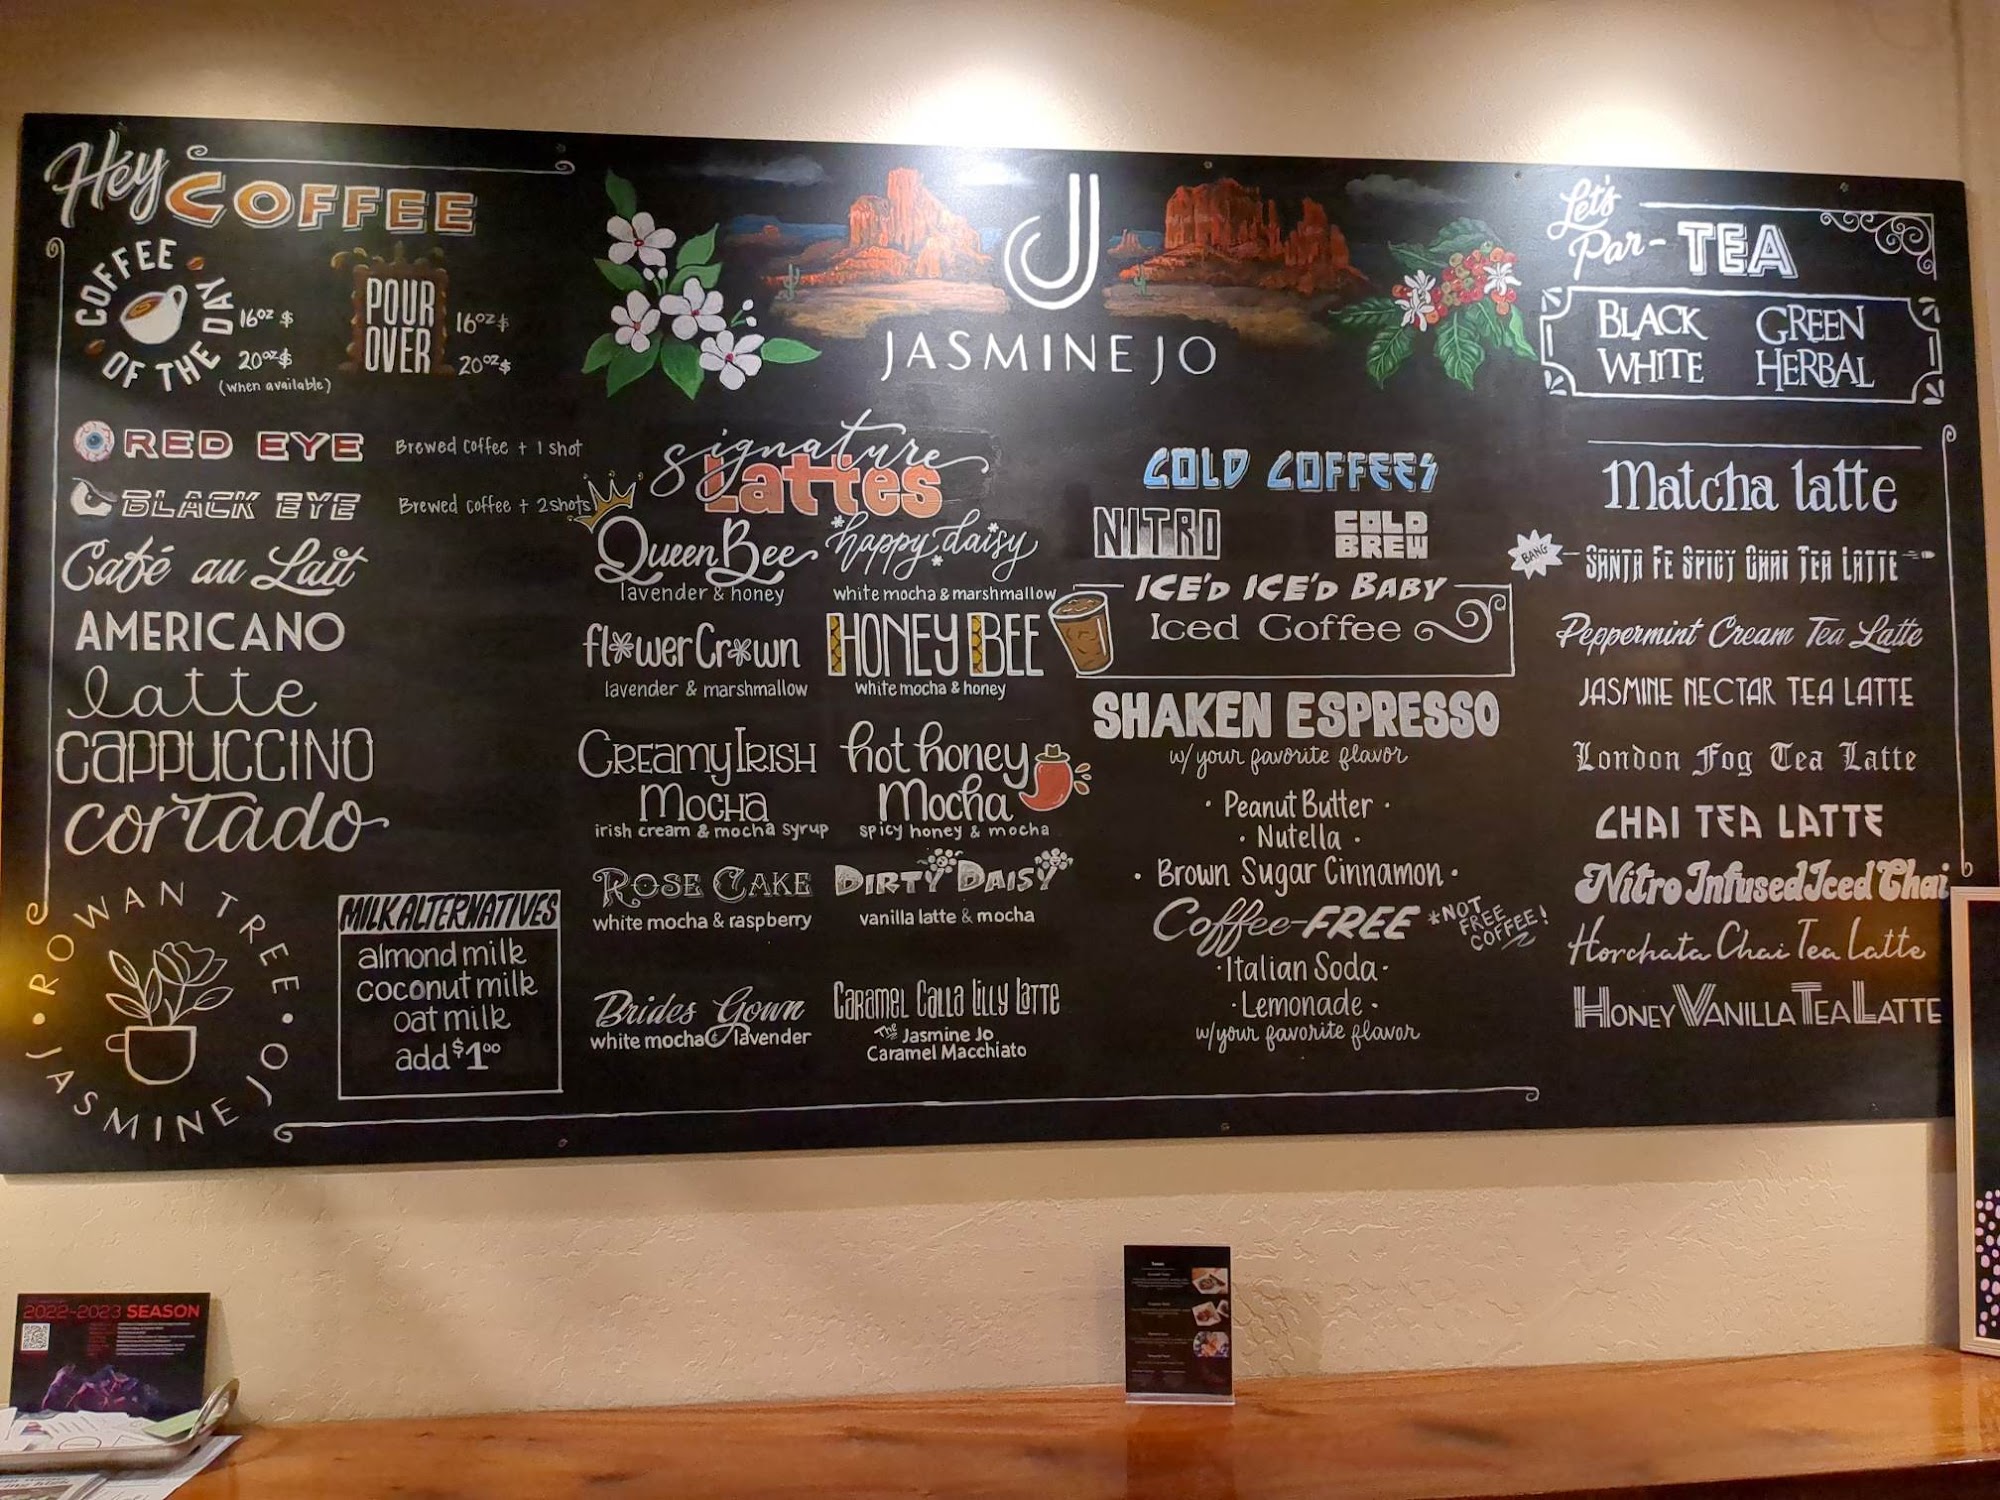 Hey COFFEE
COFFEE OF THE DAY
16oz $
20oz $
(when available)
POUR
OVER
16oz $
20oz $
RED EYE Brewed Coffee + 1 shot
BLACK EYE Brewed Coffee + 2 shots
Café au Lait
AMERICANO
latte
CAPPUCCINO
cortado
ROWAN TREE • JASMINE JO •
MILK ALTERNATIVES
almond milk
coconut milk
oat milk
add $1.00
J
JASMINE JO
signature
Lattes
Queen Bee
lavender & honey
happy daisy
white mocha & marshmallow
flower Crown
lavender & marshmallow
HONEY BEE
white mocha & honey
CREAMY IRISH
MOCHA
irish cream & mocha syrup
hot honey
Mocha
spicy honey & mocha
ROSE CAKE
white mocha & raspberry
DIRTY DAISY
vanilla latte & mocha
Brides Gown
white mocha & lavender
CARAMEL CALLA LILLY LATTE
The Jasmine Jo
Caramel Macchiato
COLD COFFEES
NITRO
COLD
BREW
ICE'D ICE'D BABY
Iced Coffee
SHAKEN ESPRESSO
w/your favorite flavor
• Peanut Butter •
• Nutella •
• Brown Sugar Cinnamon •
Coffee-FREE
*NOT
FREE
COFFEE!
• Italian Soda •
• Lemonade •
w/your favorite flavor
Let's
Par-TEA
BLACK GREEN
WHITE HERBAL
Matcha latte
BANG
SANTA FE SPICY CHAI TEA LATTE
Peppermint Cream Tea Latte
JASMINE NECTAR TEA LATTE
London Fog Tea Latte
CHAI TEA LATTE
Nitro Infused Iced Chai
Horchata Chai Tea Latte
HONEY VANILLA TEA LATTE
2022-2023 SEASON